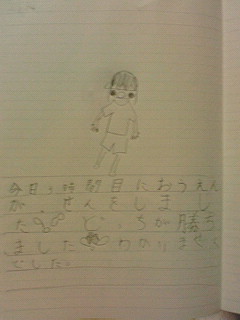 今日、時間目におうえん
がっせんをしまし
た。どっちが勝ち
ましたかわかりません
でした。